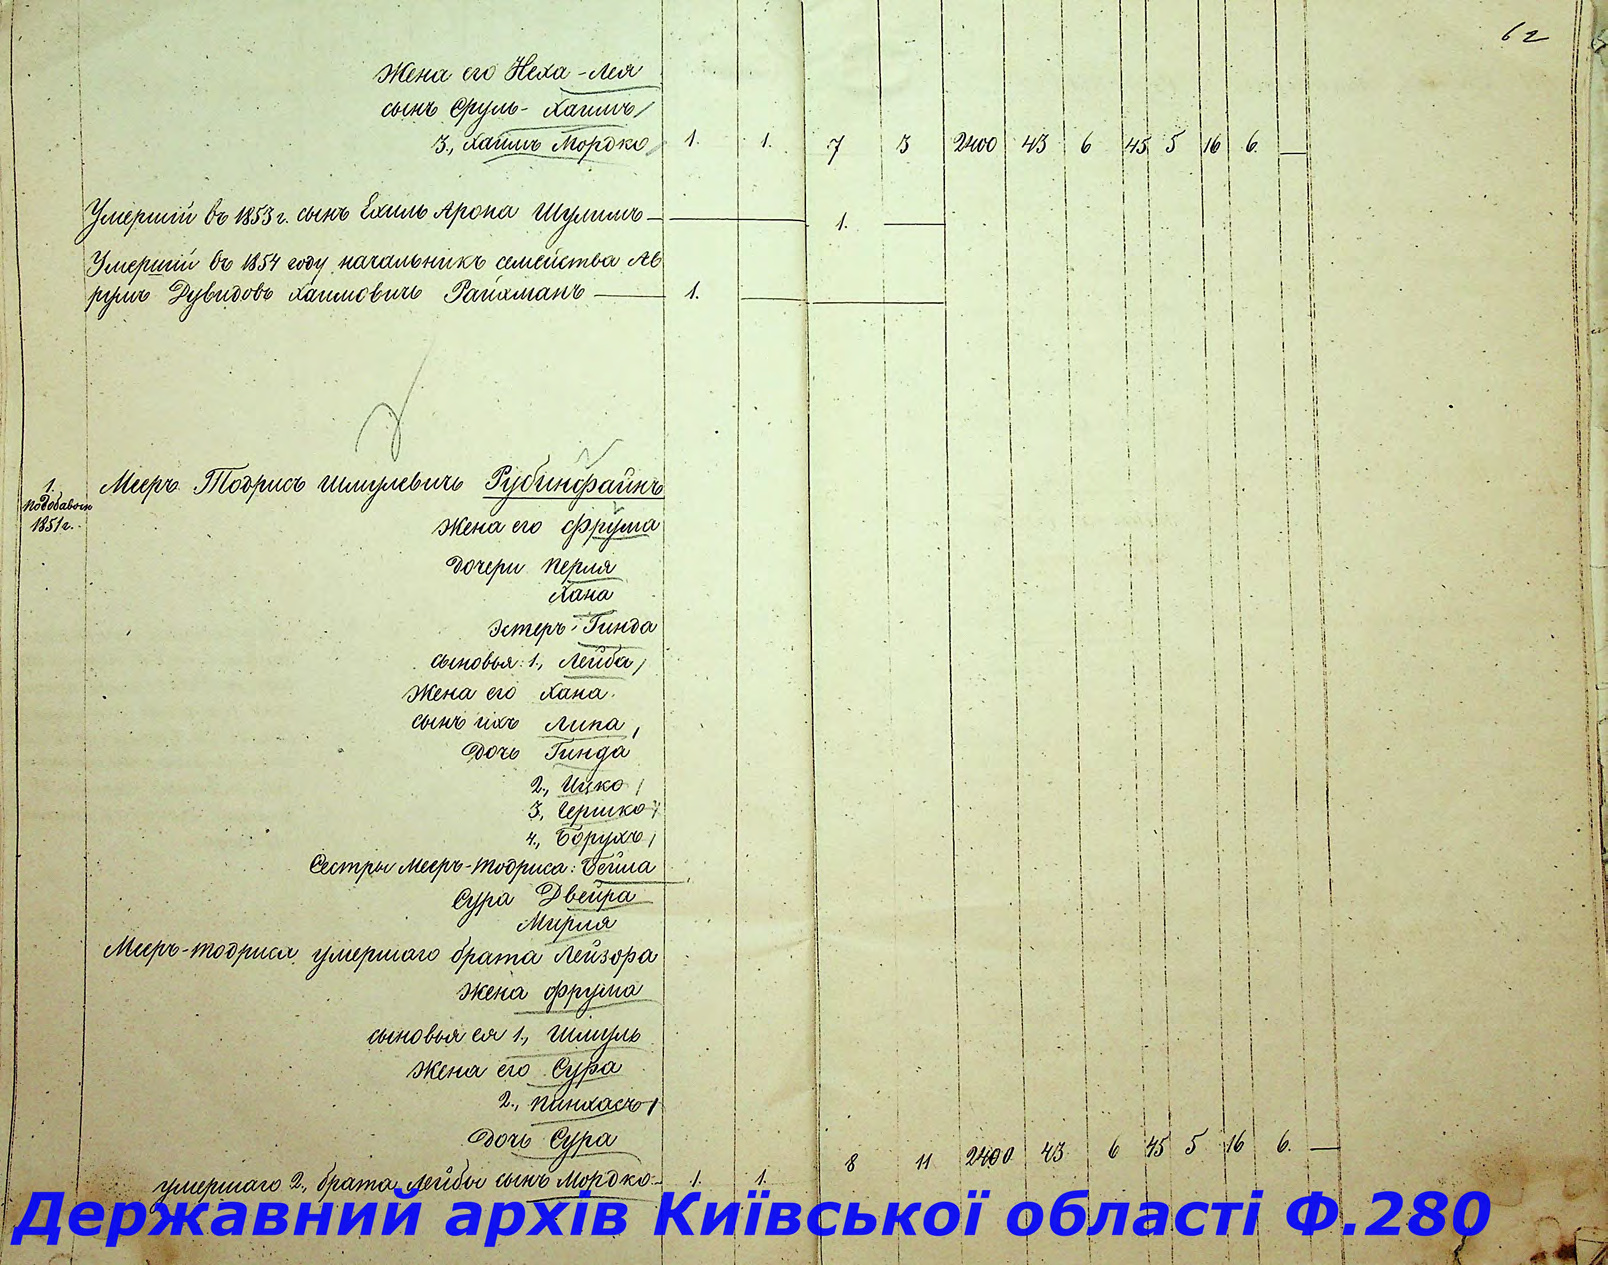 62
Жена его Неха-Лея
сынъ Сруль-Хаимъ
3., Хаимъ Мордко 1. 1. 7 3 2400 43 6 45 5 16 6. —
Умершій въ 1853 г. сынъ Ехиль Арона Шулимъ — 1. —
Умершій въ 1854 году начальникъ семейства Ав
румъ Дувидовъ Хаимовичъ Райхманъ — 1. —
1. Мееръ Тодрисъ Шмулевичъ Рубинфайнъ
Подобавочн
1851 г.
Жена его Фрума
Дочери Перля
Хана
Эстеръ-Гинда
сыновья: 1., Лейба
Жена его Хана
сынъ ихъ Липа
Дочь Гинда
2., Ицко
3., Гершко
4., Борухъ
Сестры Мееръ-Тодриса: Бейла
Сура Двейра
Мирля
Мееръ-Тодриса умершаго брата Лейзора
жена Фрума
сыновья ея 1., Шмуль
Жена его Сура
2., Пинхасъ
Дочь Сура
умершаго 2., брата Лейбы сынъ Мордко — 1. 1. 8 11 2400 43 6 45 5 16 6. —
Державний архів Київської області Ф.280